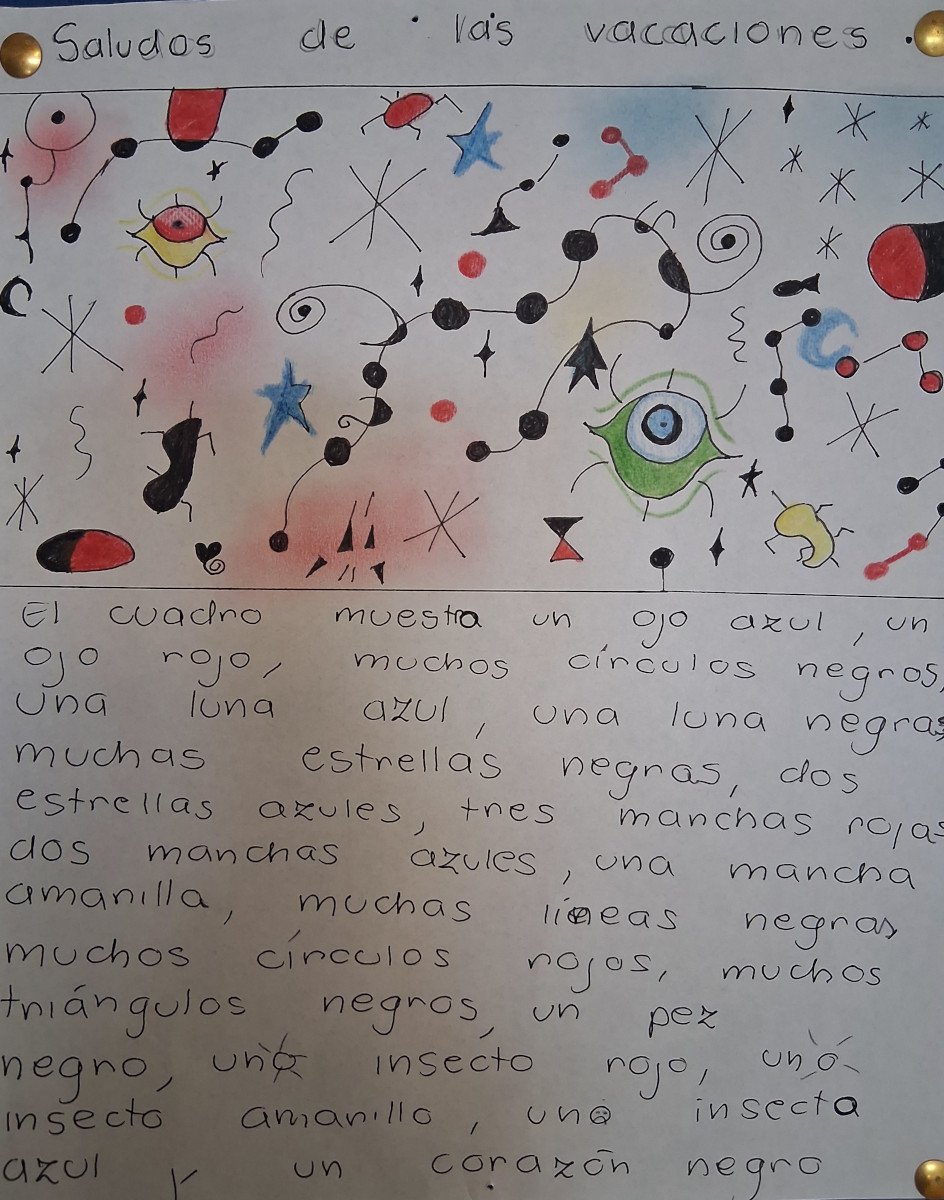 Saludos de las vacaciones.
El cuadro muestra un ojo azul, un
ojo rojo, muchos círculos negros,
una luna azul, una luna negra,
muchas estrellas negras, dos
estrellas azules, tres manchas rojas
dos manchas azules, una mancha
amarilla, muchas líneas negras
muchos círculos rojos, muchos
triángulos negros, un pez
negro, un insecto rojo, un
insecto amarillo, un insecta
azul y un corazón negro